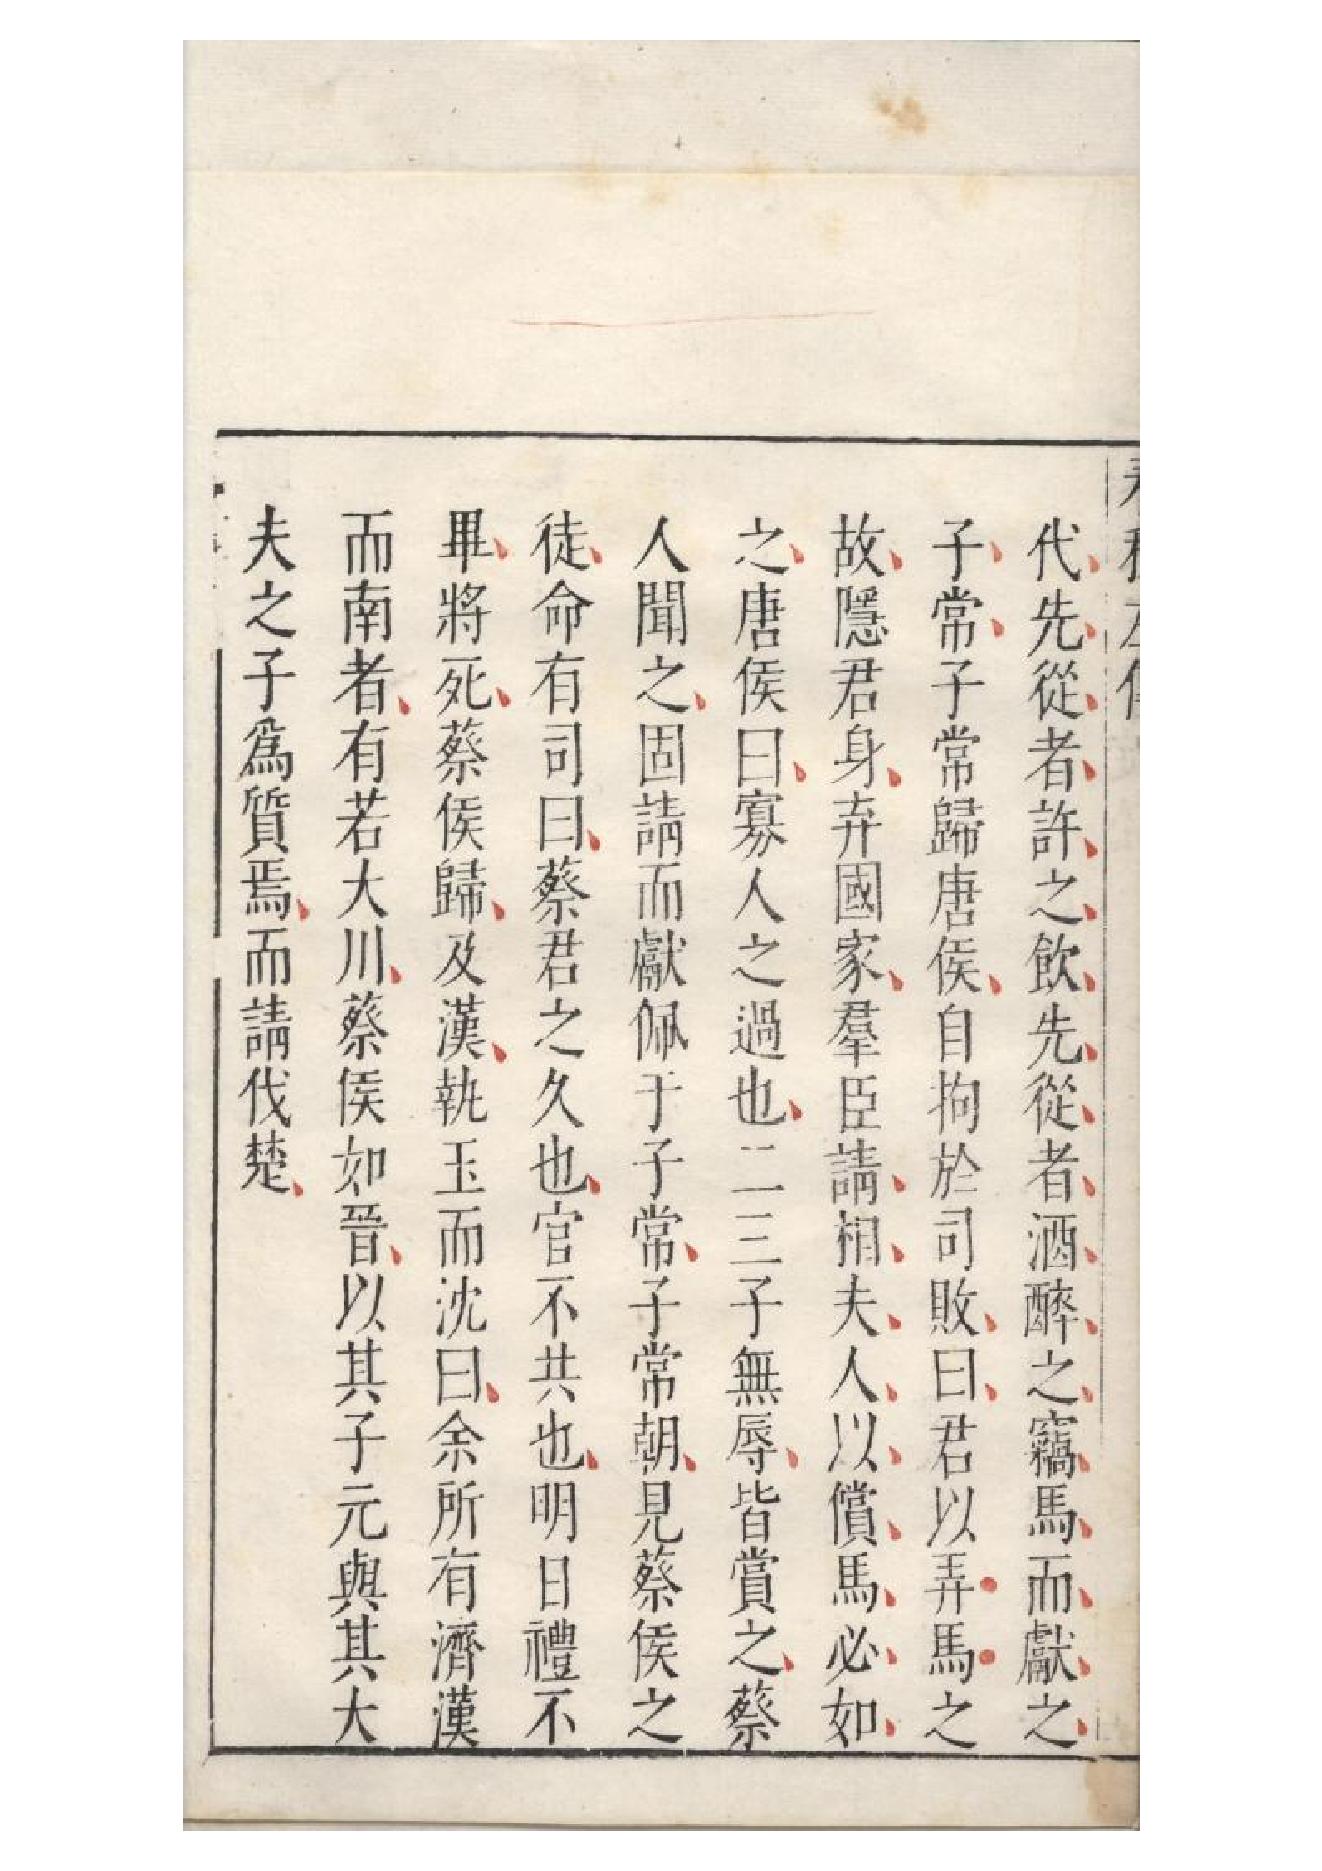 春秋左傳
代先從者許之飲先從者酒醉之竊馬而獻之
子常子常歸唐侯自拘於司敗曰君以弄馬之
故隱君身弃國家羣臣請相夫人以償馬必如
之唐侯曰寡人之過也二三子無辱皆賞之蔡
人聞之固請而獻佩于子常子常朝見蔡侯之
徒命有司曰蔡君之久也官不共也明日禮不
畢將死蔡侯歸及漢執玉而沈曰余所有濟漢
而南者有若大川蔡侯如晉以其子元與其大
夫之子爲質焉而請伐楚